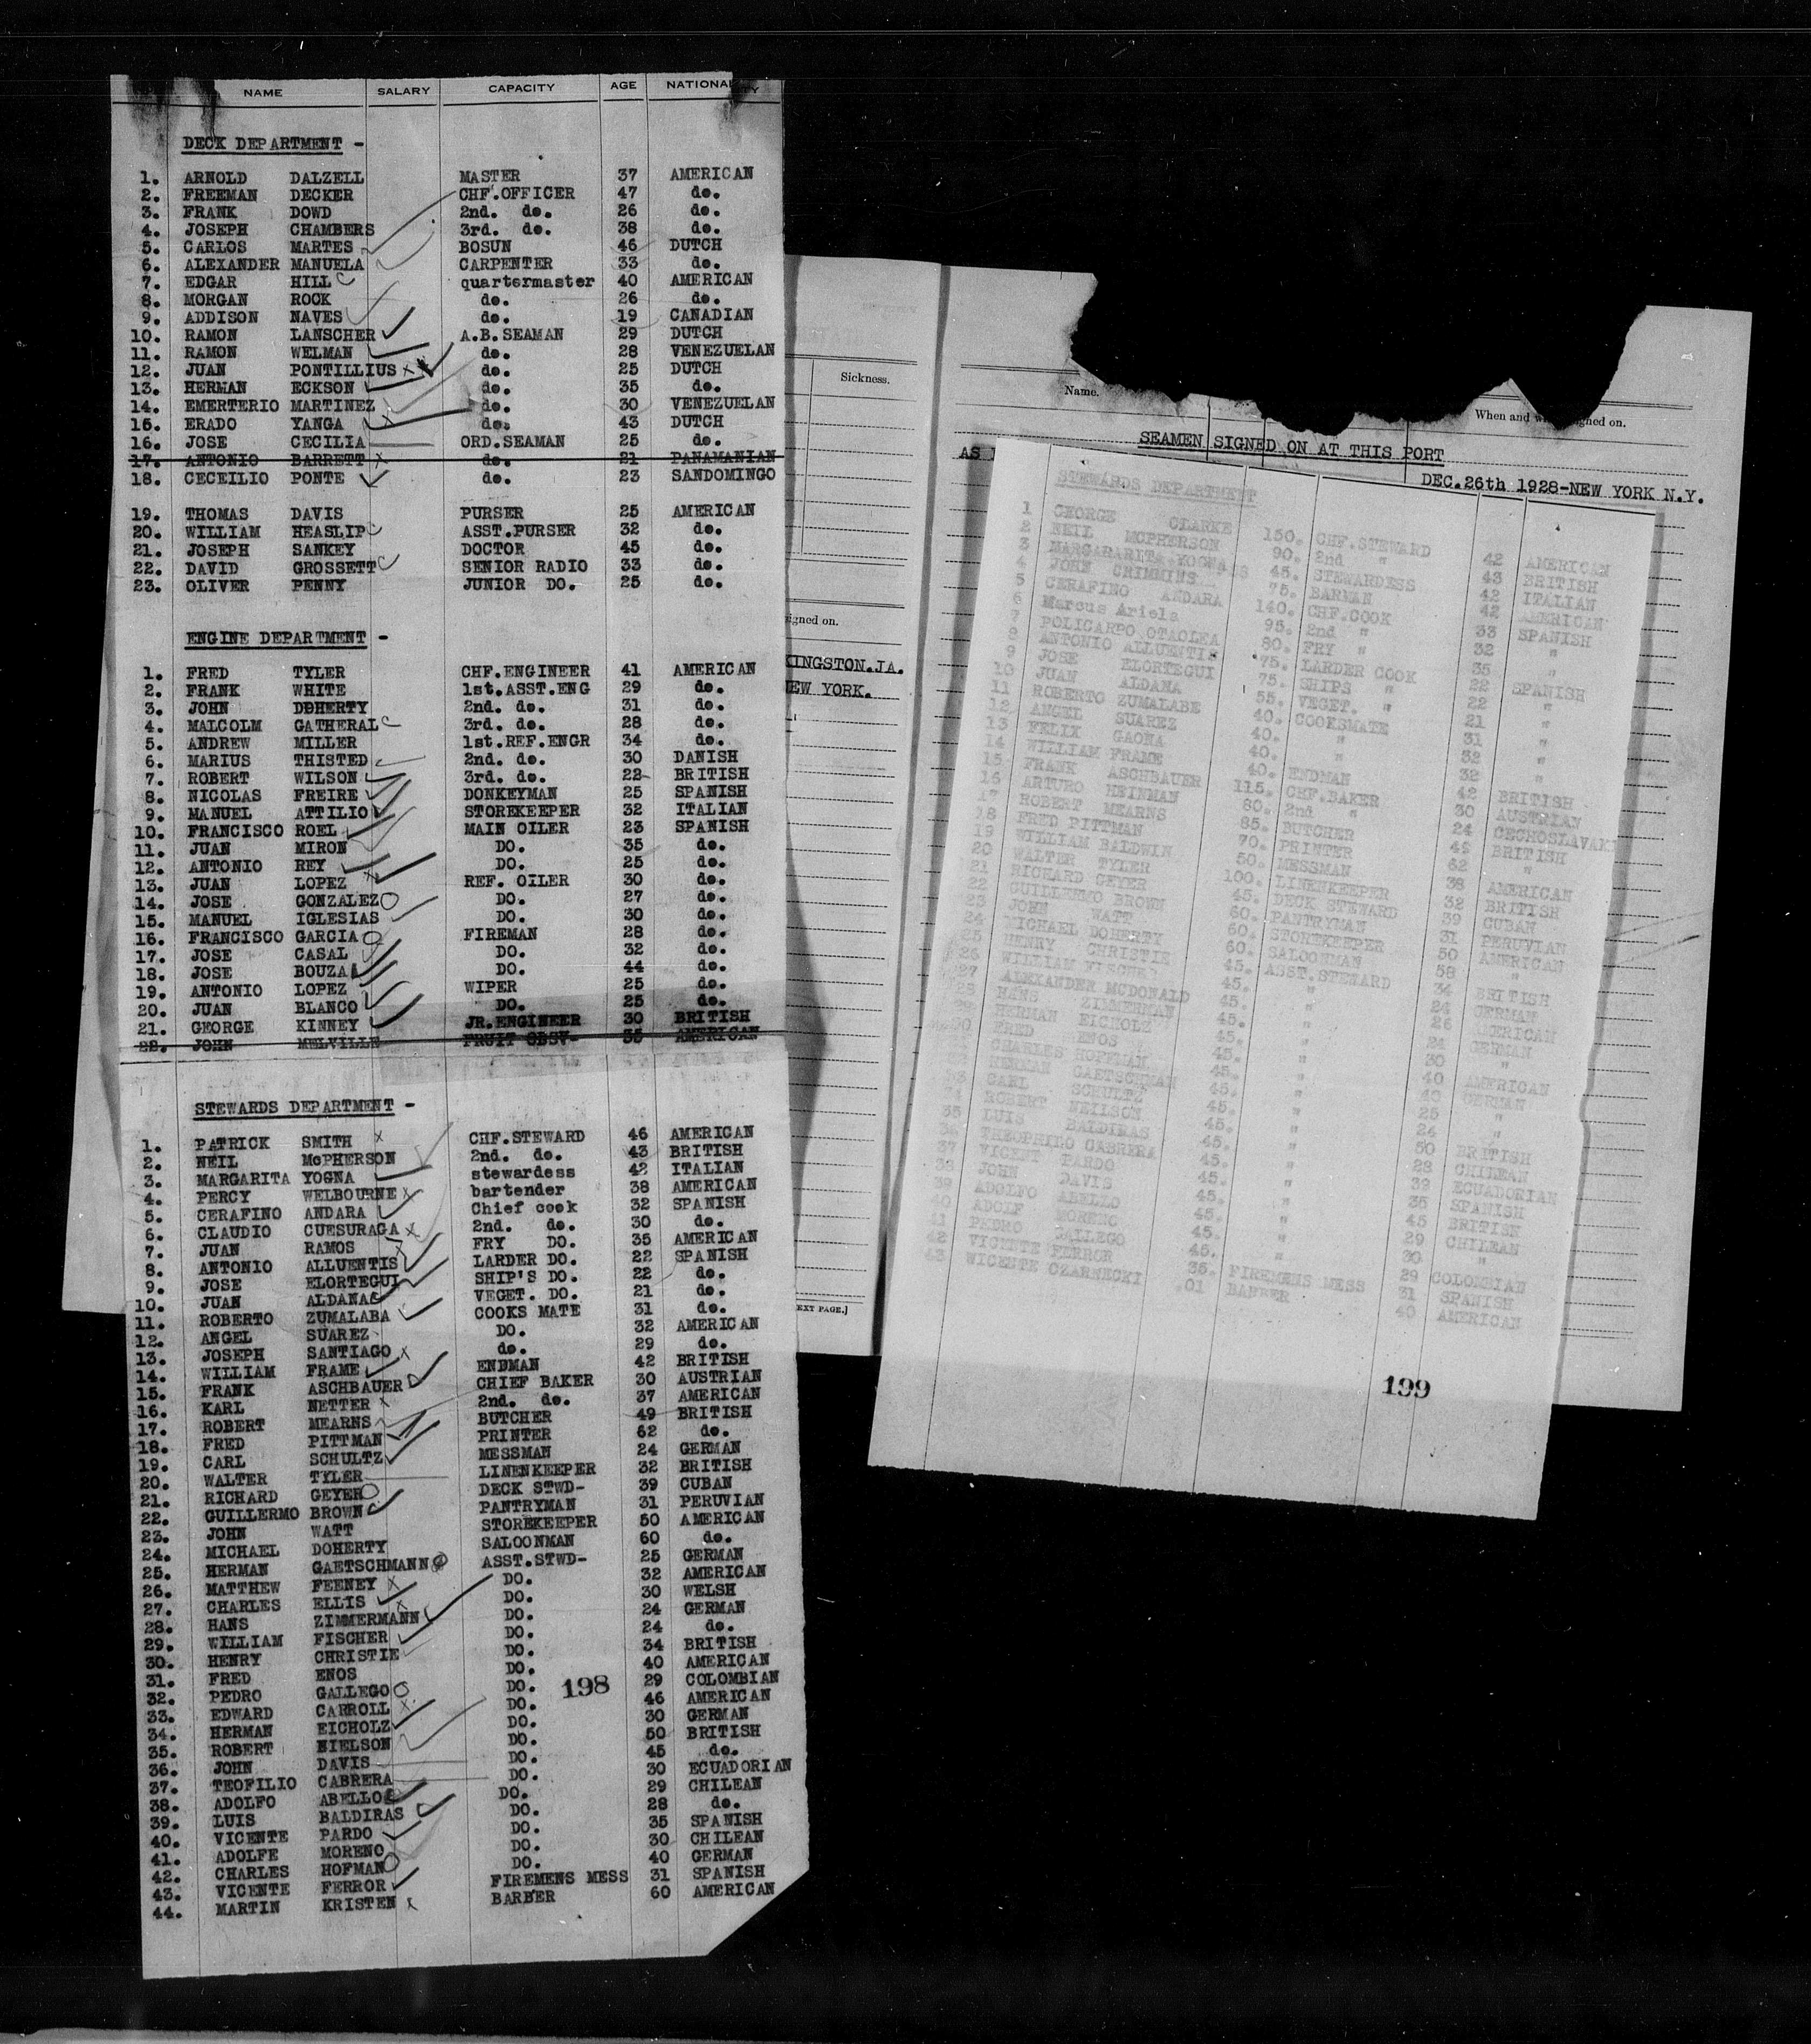 NAME SALARY CAPACITY AGE NATIONALITY
DECK DEPARTMENT -
1. ARNOLD DALZELL MASTER 37 AMERICAN
2. FREEMAN DECKER CHF.OFFICER 47 do.
3. FRANK DOWD 2nd. do. 26 do.
4. JOSEPH CHAMBERS 3rd. do. 38 do.
5. CARLOS MARTES BOSUN 46 DUTCH
6. ALEXANDER MANUELA CARPENTER 33 do.
7. EDGAR HILL quartermaster 40 AMERICAN
8. MORGAN ROCK do. 26 do.
9. ADDISON NAVES do. 19 CANADIAN
10. RAMON LANSCHER A.B.SEAMAN 29 DUTCH
11. RAMON WELMAN do. 28 VENEZUELAN
12. JUAN PONTILLIUS do. 25 DUTCH
13. HERMAN ECKSON do. 35 do.
14. EMERTERIO MARTINEZ do. 30 VENEZUELAN
15. ERADO YANGA do. 43 DUTCH
16. JOSE CECILIA ORD.SEAMAN 25 do.
17. ANTONIO BARRETT do. 21 PANAMANIAN
18. CECEILIO PONTE do. 23 SANDOMINGO
19. THOMAS DAVIS PURSER 25 AMERICAN
20. WILLIAM HEASLIP ASST.PURSER 32 do.
21. JOSEPH SANKEY DOCTOR 45 do.
22. DAVID GROSSETT SENIOR RADIO 33 do.
23. OLIVER PENNY JUNIOR DO. 25 do.
ENGINE DEPARTMENT -
1. FRED TYLER CHF.ENGINEER 41 AMERICAN
2. FRANK WHITE 1st.ASST.ENG 29 do.
3. JOHN DOHERTY 2nd. do. 31 do.
4. MALCOLM GATHERAL 3rd. do. 28 do.
5. ANDREW MILLER 1st.REF.ENGR 34 do.
6. MARIUS THISTED 2nd. do. 30 DANISH
7. ROBERT WILSON 3rd. do. 22 BRITISH
8. NICOLAS FREIRE DONKEYMAN 25 SPANISH
9. MANUEL ATTILIO STOREKEEPER 32 ITALIAN
10. FRANCISCO ROEL MAIN OILER 23 SPANISH
11. JUAN MIRON DO. 35 do.
12. ANTONIO REY DO. 25 do.
13. JUAN LOPEZ REF. OILER 30 do.
14. JOSE GONZALEZ DO. 27 do.
15. MANUEL IGLESIAS DO. 30 do.
16. FRANCISCO GARCIA FIREMAN 28 do.
17. JOSE CASAL DO. 32 do.
18. JOSE BOUZA DO. 44 do.
19. ANTONIO LOPEZ WIPER 25 do.
20. JUAN BLANCO DO. 25 do.
21. GEORGE KINNEY JR.ENGINEER 30 BRITISH
22. JOHN MELVILLE FRUIT OBSV- 35 AMERICAN
STEWARDS DEPARTMENT -
1. PATRICK SMITH CHF.STEWARD 46 AMERICAN
2. NEIL McPHERSON 2nd. do. 43 BRITISH
3. MARGARITA YOGNA stewardess 42 ITALIAN
4. PERCY WELBOURNE bartender 38 AMERICAN
5. CERAFINO ANDARA Chief cook 32 SPANISH
6. CLAUDIO CUESURAGA 2nd. do. 30 do.
7. JUAN RAMOS FRY DO. 35 AMERICAN
8. ANTONIO ALLUENTIS LARDER DO. 22 SPANISH
9. JOSE ELORTEGUI SHIP'S DO. 22 do.
10. JUAN ALDANA VEGET. DO. 21 do.
11. ROBERTO ZUMALABA COOKS MATE 31 do.
12. ANGEL SUAREZ DO. 32 AMERICAN
13. JOSEPH SANTIAGO do. 29 do.
14. WILLIAM FRAME ENDMAN 42 BRITISH
15. FRANK ASCHBAUER CHIEF BAKER 30 AUSTRIAN
16. KARL NETTER 2nd. do. 37 AMERICAN
17. ROBERT MEARNS BUTCHER 49 BRITISH
18. FRED PITTMAN PRINTER 62 do.
19. CARL SCHULTZ MESSMAN 24 GERMAN
20. WALTER TYLER LINENKEEPER 32 BRITISH
21. RICHARD GEYER DECK STWD- 39 CUBAN
22. GUILLERMO BROWN PANTRYMAN 31 PERUVIAN
23. JOHN WATT STOREKEEPER 50 AMERICAN
24. MICHAEL DOHERTY SALOONMAN 60 do.
25. HERMAN GAETSCHMANN ASST.STWD- 25 GERMAN
26. MATTHEW FEENEY DO. 32 AMERICAN
27. CHARLES ELLIS DO. 30 WELSH
28. HANS ZIMMERMANN DO. 24 GERMAN
29. WILLIAM FISCHER DO. 24 do.
30. HENRY CHRISTIE DO. 34 BRITISH
31. FRED ENOS DO. 40 AMERICAN
32. PEDRO GALLEGO DO. 29 COLOMBIAN
33. EDWARD CARROLL DO. 46 AMERICAN
34. HERMAN EICHOLZ DO. 30 GERMAN
35. ROBERT NIELSON DO. 50 BRITISH
36. JOHN DAVIS DO. 45 do.
37. TEOFILIO CABRERA DO. 30 ECUADORIAN
38. ADOLFO ABELLO DO. 29 CHILEAN
39. LUIS BALDIRAS DO. 28 do.
40. VICENTE PARDO DO. 35 SPANISH
41. ADOLFE MORENO DO. 30 CHILEAN
42. CHARLES HOFMAN DO. 40 GERMAN
43. VICENTE FERROR FIREMENS MESS 31 SPANISH
44. MARTIN KRISTEN BARBER 60 AMERICAN
198
Sickness.
signed on.
KINGSTON.JA.
NEW YORK.
EXT PAGE.]
Name.
When and signed on.
SEAMEN SIGNED ON AT THIS PORT
AS
DEC.26th 1928-NEW YORK N.Y.
STEWARDS DEPARTMENT
1 GEORGE CLARKE 150. CHF.STEWARD 42 AMERICAN
2 NEIL MCPHERSON 90. 2nd " 43 BRITISH
3 45. STEWARDESS 42 ITALIAN
4 JOHN CRIMMINS 75. BARMAN 42 AMERICAN
5 CERAFINO ANDARA 140. CHF.COOK 33 SPANISH
6 Marcus Ariela 95. 2nd " 32 "
7 POLICARPO OTAOLEA 80. FRY " 35 "
8 ANTONIO ALLUENTIS 75. LARDER COOK 22 SPANISH
9 JOSE ELORTEGUI 75. SHIPS " 22 "
10 JUAN ALDANA 55. VEGET. " 21 "
11 ROBERTO ZUMALABE 40. COOKSMATE 31 "
12 ANGEL SUAREZ 40. " 32 "
13 FELIX GAONA 40. " 32 "
14 WILLIAM FRAME 40. ENDMAN 42 BRITISH
15 FRANK ASCHBAUER 115. CHF.BAKER 30 AUSTRIAN
16 ARTURO HEINMAN 80. 2nd " 24 CECHOSLAVAKI
17 ROBERT MEARNS 85. BUTCHER 49 BRITISH
18 FRED PITTMAN 70. PRINTER 62 "
19 WILLIAM BALDWIN 50. MESSMAN 38 AMERICAN
20 WALTER TYLER 100. LINENKEEPER 32 BRITISH
21 RICHARD GEYER 45. DECK STEWARD 39 CUBAN
22 GUILLERMO BROWN 60. PANTRYMAN 31 PERUVIAN
23 JOHN WATT 60. STOREKEEPER 50 AMERICAN
24 MICHAEL DOHERTY 60. SALOONMAN 58 "
25 HENRY CHRISTIE 45. ASST.STEWARD 34 BRITISH
26 WILLIAM FISCHER 45. " 24 GERMAN
27 ALEXANDER MCDONALD 45. " 26 AMERICAN
28 HANS ZIMMERMAN 45. " 24 GERMAN
HERMAN EICHOLZ 45. " 30 "
FRED ENOS 45. " 40 AMERICAN
CHARLES HOFFMAN 45. " 40 GERMAN
HERMAN GAETSCHMAN 45. " 25 "
33 CARL SCHULTZ 45. " 24 "
34 ROBERT NEILSON 45. " 50 BRITISH
35 LUIS BALDIRAS 45. " 28 CHILEAN
36 THEOPHILO CABRERA 45. " ECUADORIAN
37 VICENT PARDO 45. " 35 SPANISH
38 JOHN DAVIS 45. " 45 BRITISH
39 ADOLFO ABELLO 45. " 29 CHILEAN
40 ADOLF MORENO 45. " 30 "
41 PEDRO GALLEGO 45. " 29 COLOMBIAN
42 VICENTE FERROR 35. FIREMENS MESS 31 SPANISH
43 WICENTE CZARNECKI .01 BARBER 40 AMERICAN
199